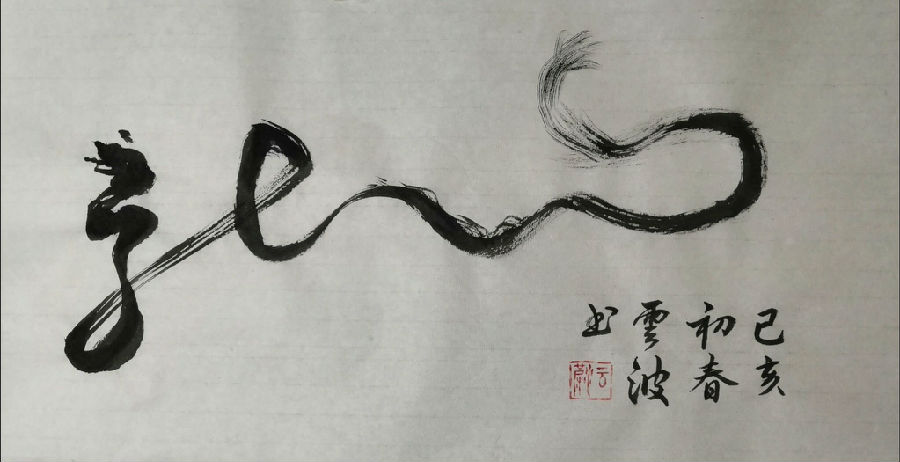 龍
己亥
初春
雲波
书